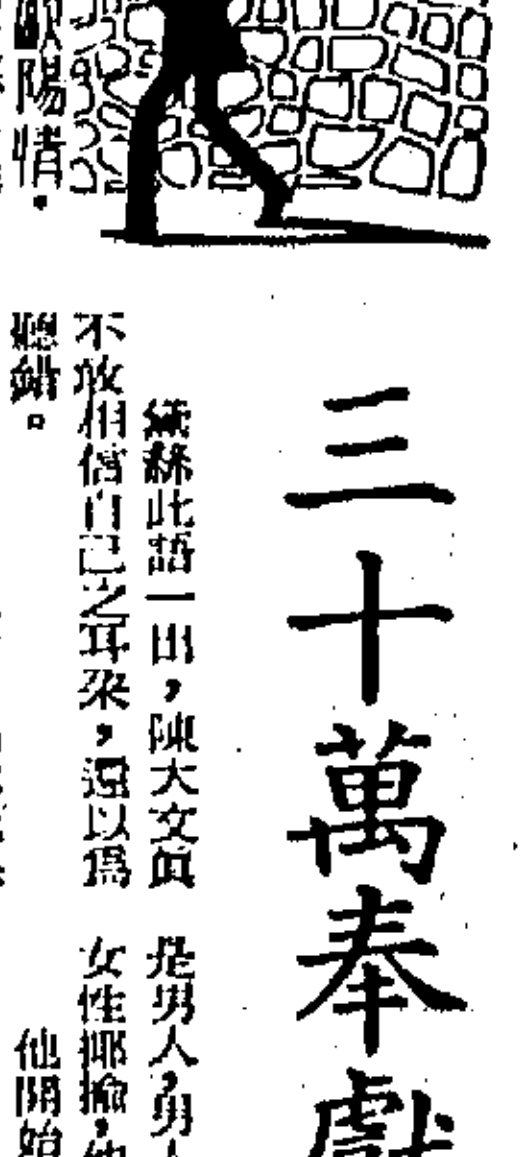 三十萬奉獻
黛絲此語一出，陳大文眞
不敢相信自己之耳朶，還以爲
聽錯。
是男人，男人
女性揶揄，他
他開始
歐陽情．